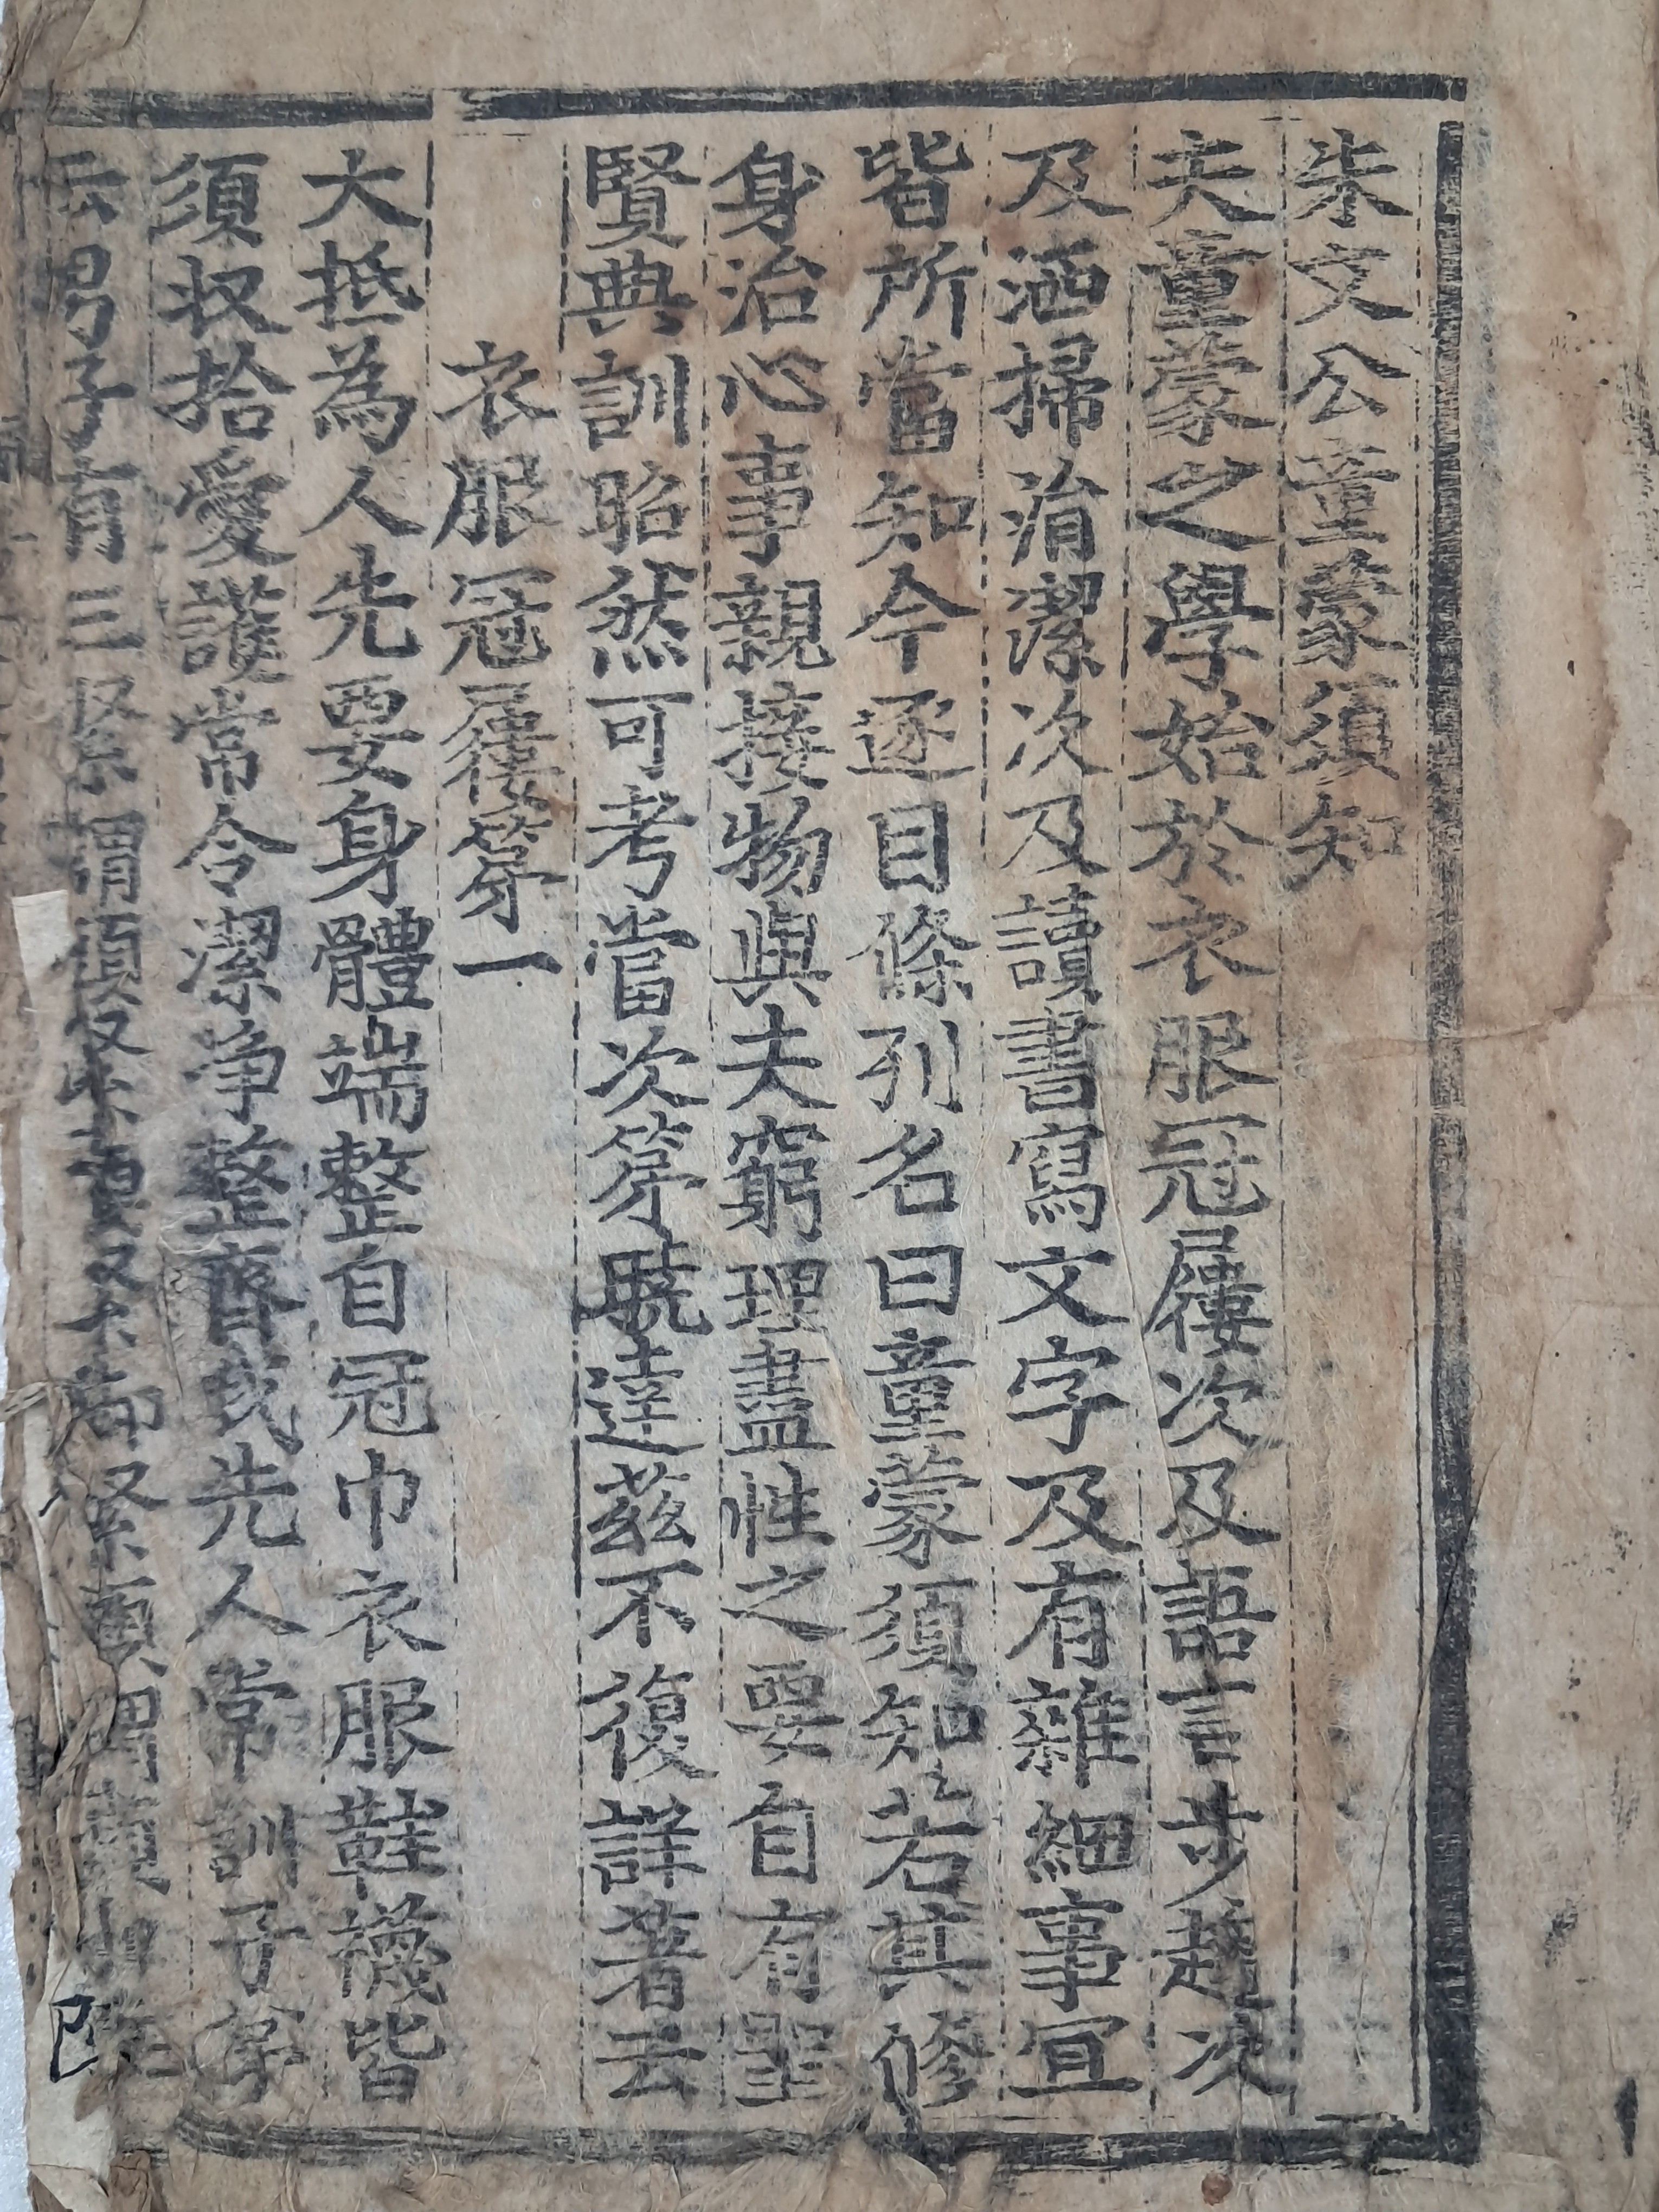 朱文公童蒙須知
夫童蒙之學始於衣服冠屨次及語言步趨次
及洒掃涓潔次及讀書寫文字及有雜細事宜
皆所當知今逐目條列名曰童蒙須知若其修
身治心事親接物與夫窮理盡性之要自有聖
賢典訓昭然可考當次第曉達茲不復詳著云
衣服冠屨第一
大抵為人先要身體端整自冠巾衣服鞋襪皆
須收拾愛護常令潔净整齊我先人常訓子弟
云男子有三緊謂頭緊腰緊脚緊頭謂頭巾